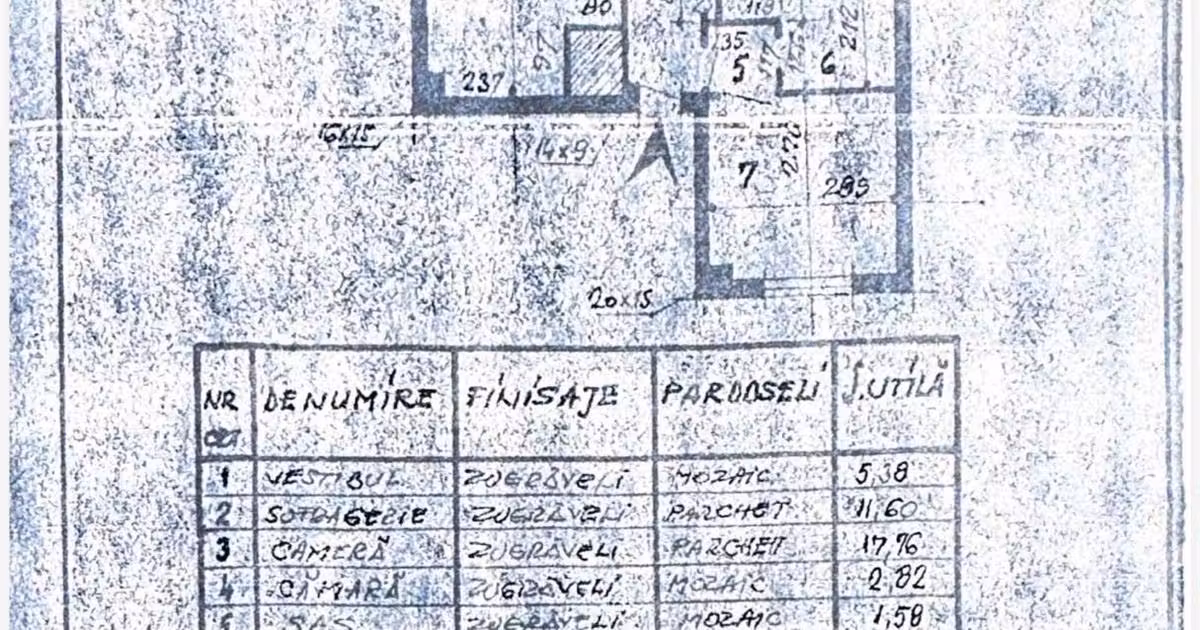 237
97
135
5
6
212
16x15
14x9
7
270
299
20x15
NR DENUMIRE FINISAJE PARDOSELI S.UTILĂ
CRT
1 VESTIBUL ZUGRĂVELI MOZAIC 5,38
2 SUFRAGERIE ZUGRĂVELI PARCHET 11,60
3 CAMERĂ ZUGRĂVELI PARCHET 17,76
4 CĂMARĂ ZUGRĂVELI MOZAIC 2,82
5 SAS ZUGRĂVELI MOZAIC 1,58